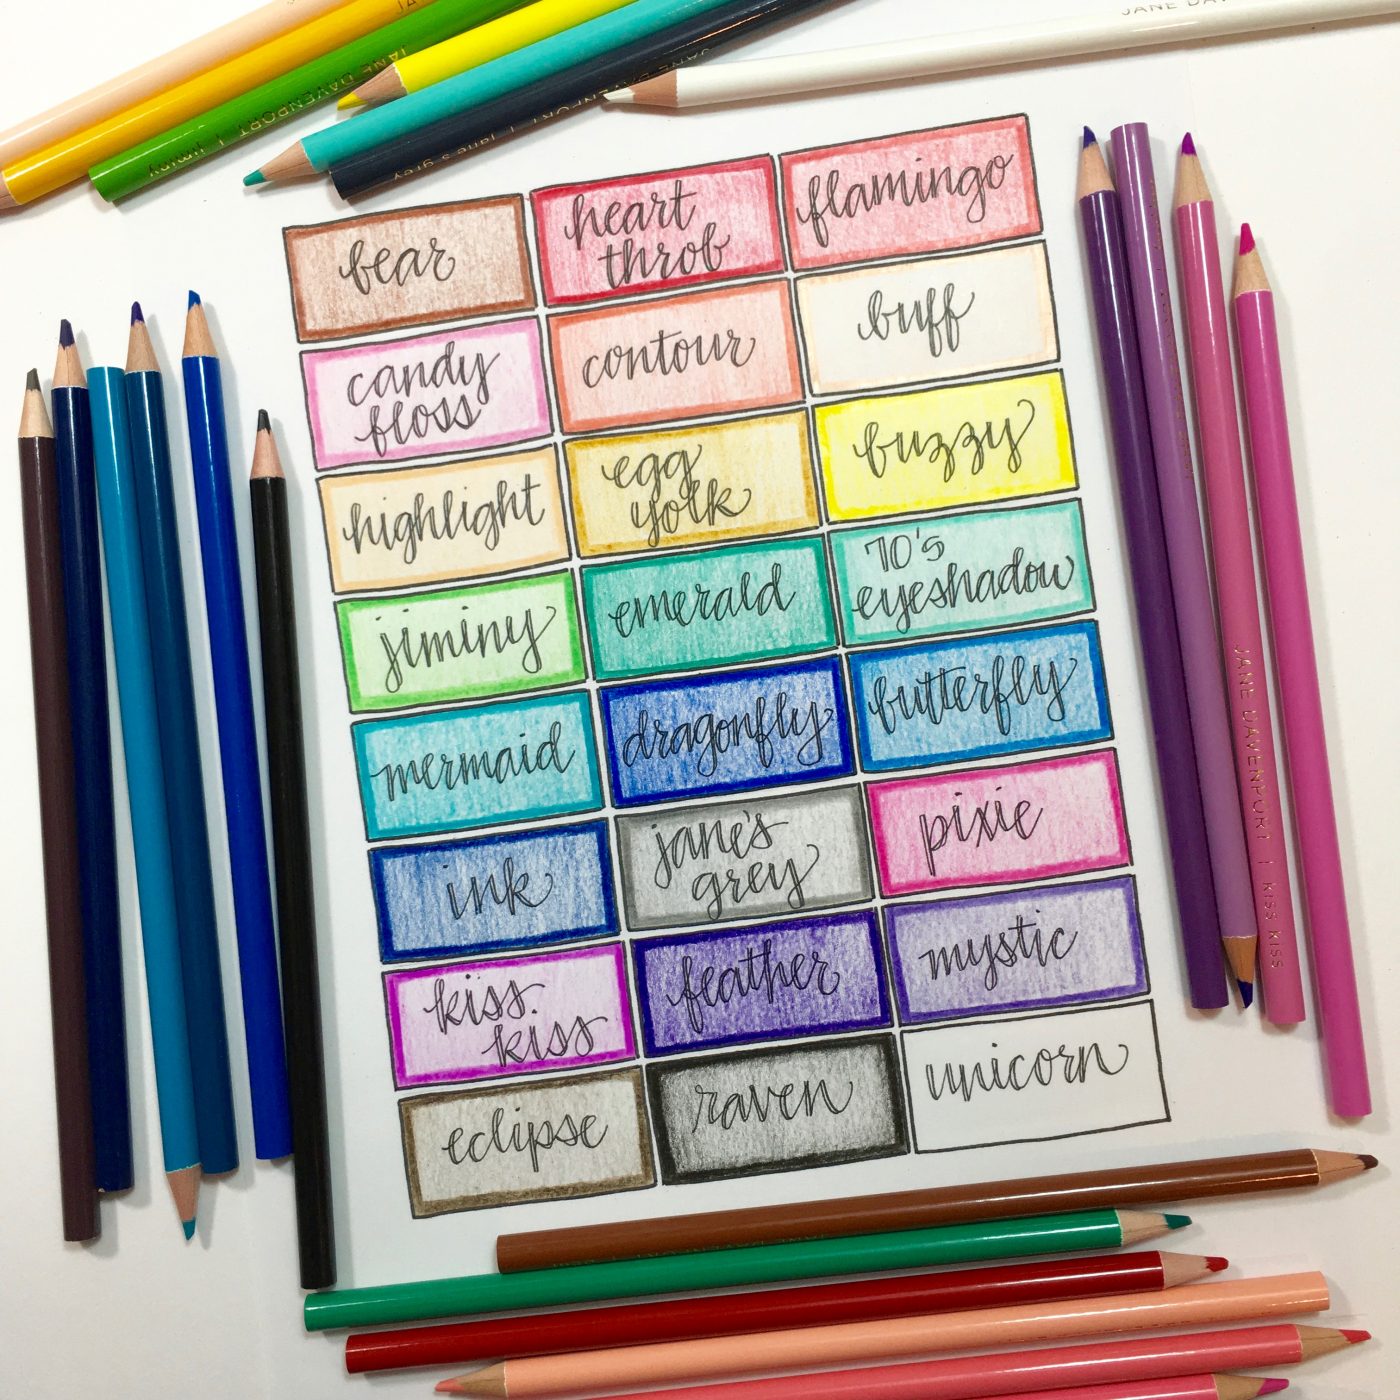 JANE DAVENPORT | jiminy
JANE DAVENPORT | jane's grey
JANE DAV
bear
heart
throb
flamingo
candy
floss
contour
buff
highlight
egg
yolk
buzzy
jiminy
emerald
70's
eyeshadow
mermaid
dragonfly
butterfly
ink
jane's
grey
pixie
kiss
kiss
feather
mystic
eclipse
raven
unicorn
JANE DAVENPORT | KISS KISS